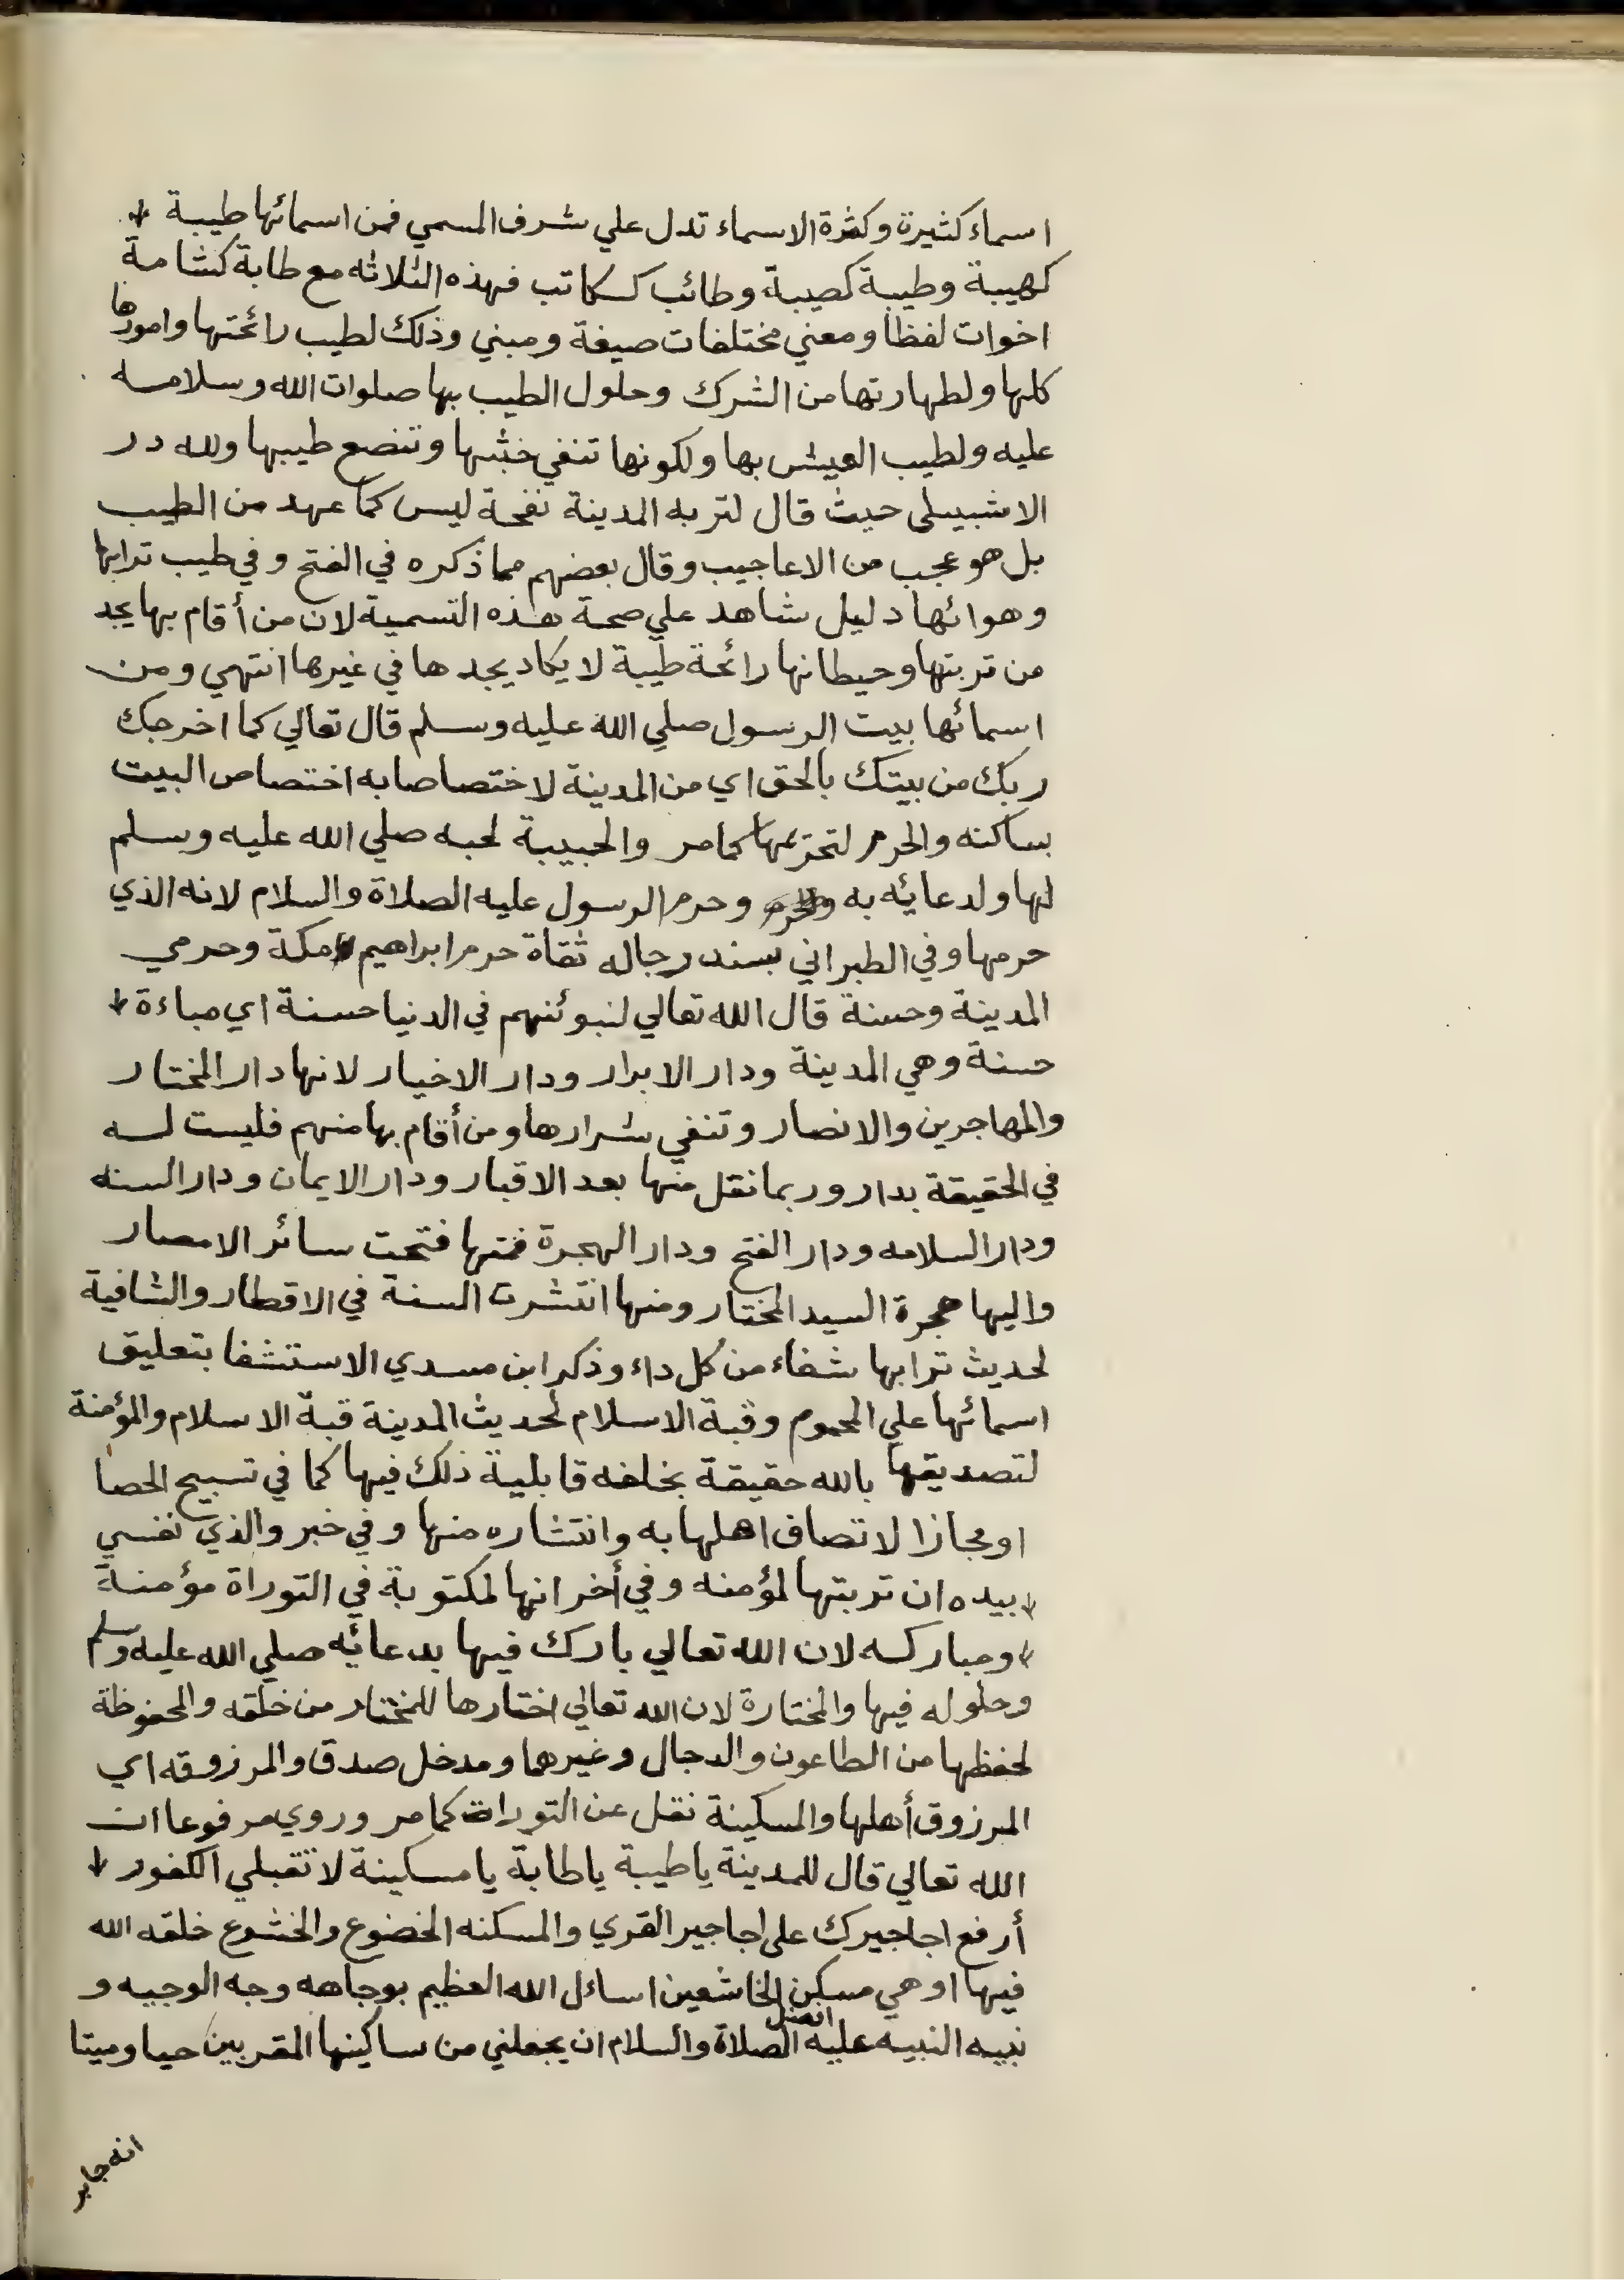 اسماء كثيرة وكثرة الاسماء تدل علي شرف المسمي فمن اسمائها طيبة
كهيبة وطيبة كصيبة وطائب ككاتب فهذه الثلاثه مع طابة كشامة
اخوات لفظا ومعني مختلفات صيغة ومبني وذلك لطيب رائحتها وامورها
كلها ولطهارتها من الشرك وحلول الطيب بها صلوات الله وسلامه
عليه ولطيب العيش بها ولكونها تنفي خبثها وتنصع طيبها ولله در
الاشبيلي حيث قال لتربه المدينة نفحة ليس كما عهد من الطيب
بل هو عجب من الاعاجيب وقال بعضهم مما ذكره في الفتح وفي طيب ترابها
وهوائها دليل شاهد علي صحة هذه التسمية لان من أقام بها يجد
من تربتها وحيطانها رائحة طيبة لا يكاد يجدها في غيرها انتهي ومن
اسمائها بيت الرسول صلي الله عليه وسلم قال تعالي كما اخرجك
ربك من بيتك بالحق اي من المدينة لاختصاصا به اختصاص البيت
بساكنه والحرم لتحريمها كما مر والحبيبة لحبه صلي الله عليه وسلم
لها ولدعائه به وحرم الرسول عليه الصلاة والسلام لانه الذي
حرمها وفي الطبراني بسند رجاله ثقاة حرم ابراهيم مكة وحرمي
المدينة وحسنة قال الله تعالي لنبوئنهم في الدنيا حسنة اي مباءة
حسنة وهي المدينة ودار الابرار ودار الاخيار لانها دار المختار
والمهاجرين والانصار وتنفي شرارها ومن أقام بها منهم فليست له
في الحقيقة بدار وربما نقل منها بعد الاقبار ودار الايمان ودار السنه
ودار السلامه ودار الفتح ودار الهجرة فمنها فتحت سائر الامصار
واليها هجرة السيد المختار ومنها انتشرت السنة في الاقطار والشافية
لحديث ترابها شفاء من كل داء وذكر ابن مسدي الاستشفا بتعليق
اسمائها علي المحموم وقبة الاسلام لحديث المدينة قبة الاسلام والمؤمنة
لتصديقها بالله حقيقة بخلقه قابلية ذلك فيها كما في تسبيح الحصا
او مجازا لاتصاف اهلها به وانتشاره منها وفي خبر والذي نفسي
بيده ان تربتها لمؤمنه وفي أخر انها لمكتوبة في التوراة مؤمنة
ومباركه لان الله تعالي بارك فيها بدعائه صلي الله عليه وسلم
وحلوله فيها والمختارة لان الله تعالي اختارها للمختار من خلقه والمحفوظة
لحفظها من الطاعون والدجال وغيرهما ومدخل صدق والمرزوقه اي
المرزوق أهلها والمسكينة نقل عن التوراة كما مر وروي مرفوعا ان
الله تعالي قال للمدينة يا طيبة يا طابة يا مسكينة لا تقبلي الكفور
أرفع اجاجيرك علي اجاجير القري والمسكنه الخضوع والخشوع خلقه الله
فيها او هي مسكن الخاشعين اسائل الله العظيم بوجاهه وجه الوجيه و
نبيه النبيه عليه افضل الصلاة والسلام ان يجعلني من ساكينها المقربين حيا وميتا
انه جابر